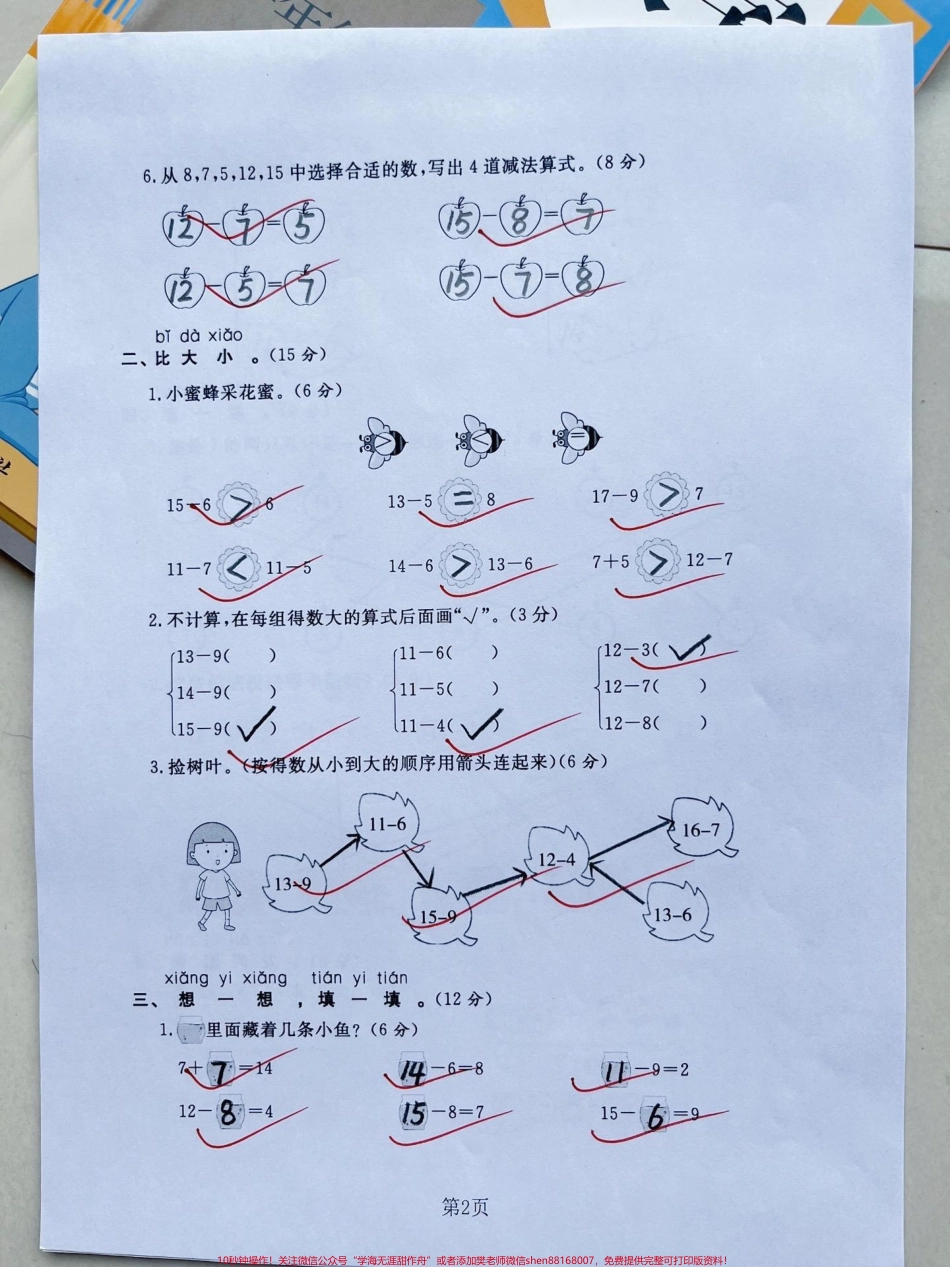 6.从8,7,5,12,15中选择合适的数,写出4道减法算式。(8分)
12-7=5 15-8=7
12-5=7 15-7=8
bǐ dà xiǎo
二、比大小。(15分)
1.小蜜蜂采花蜜。(6分)
> < =
15-6>6 13-5=8 17-9>7
11-7<11-5 14-6>13-6 7+5>12-7
2.不计算,在每组得数大的算式后面画“√”。(3分)
13-9( ) 11-6( ) 12-3(√)
14-9( ) 11-5( ) 12-7( )
15-9(√) 11-4(√) 12-8( )
3.捡树叶。(按得数从小到大的顺序用箭头连起来)(6分)
11-6 16-7
13-9 12-4
15-9 13-6
xiǎng yi xiǎng tián yi tián
三、想一想,填一填。(12分)
1. 里面藏着几条小鱼?(6分)
7+7=14 14-6=8 11-9=2
12-8=4 15-8=7 15-6=9
第2页
10秒钟操作!关注微信公众号“学海无涯甜作舟”或者添加樊老师微信shen88168007,免费提供完整可打印版资料!